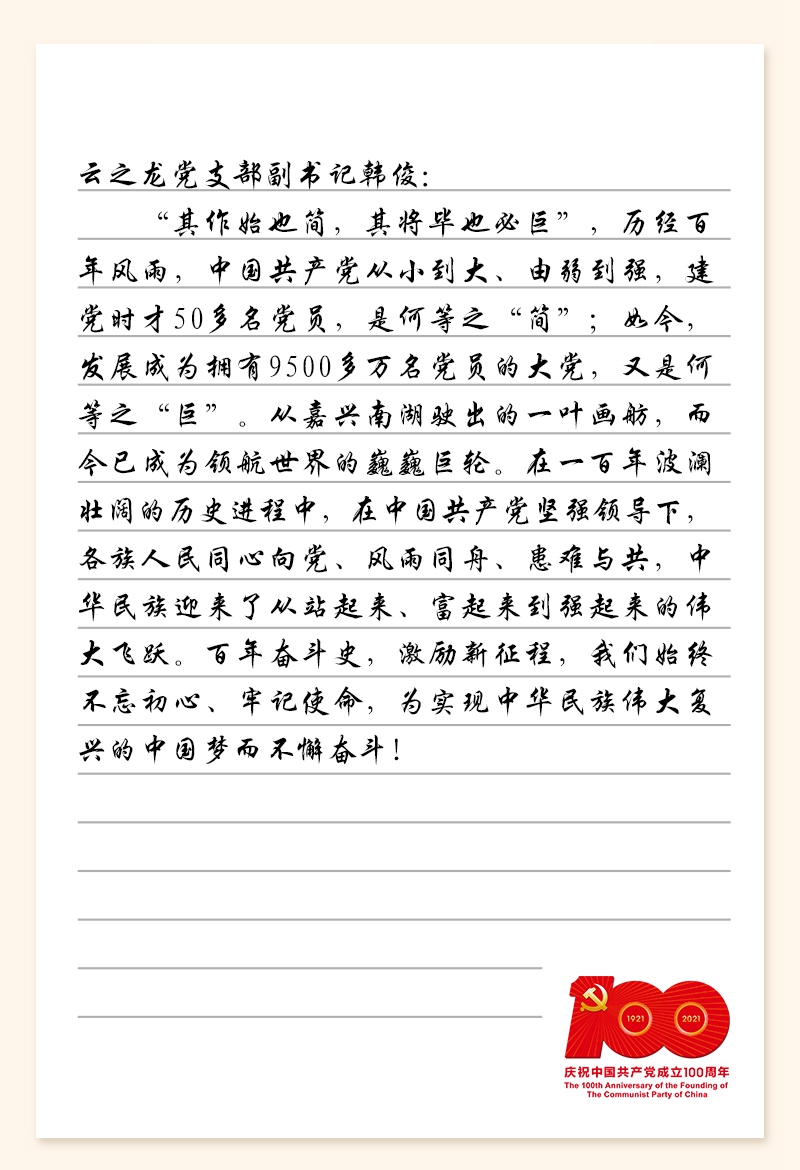 云之龙党支部副书记韩俊：
“其作始也简，其将毕也必巨”，历经百
年风雨，中国共产党从小到大、由弱到强，建
党时才50多名党员，是何等之“简”；如今，
发展成为拥有9500多万名党员的大党，又是何
等之“巨”。从嘉兴南湖驶出的一叶画舫，而
今已成为领航世界的巍巍巨轮。在一百年波澜
壮阔的历史进程中，在中国共产党坚强领导下，
各族人民同心向党、风雨同舟、患难与共，中
华民族迎来了从站起来、富起来到强起来的伟
大飞跃。百年奋斗史，激励新征程，我们始终
不忘初心、牢记使命，为实现中华民族伟大复
兴的中国梦而不懈奋斗！
100
1921 2021
庆祝中国共产党成立100周年
The 100th Anniversary of the Founding of
The Communist Party of China